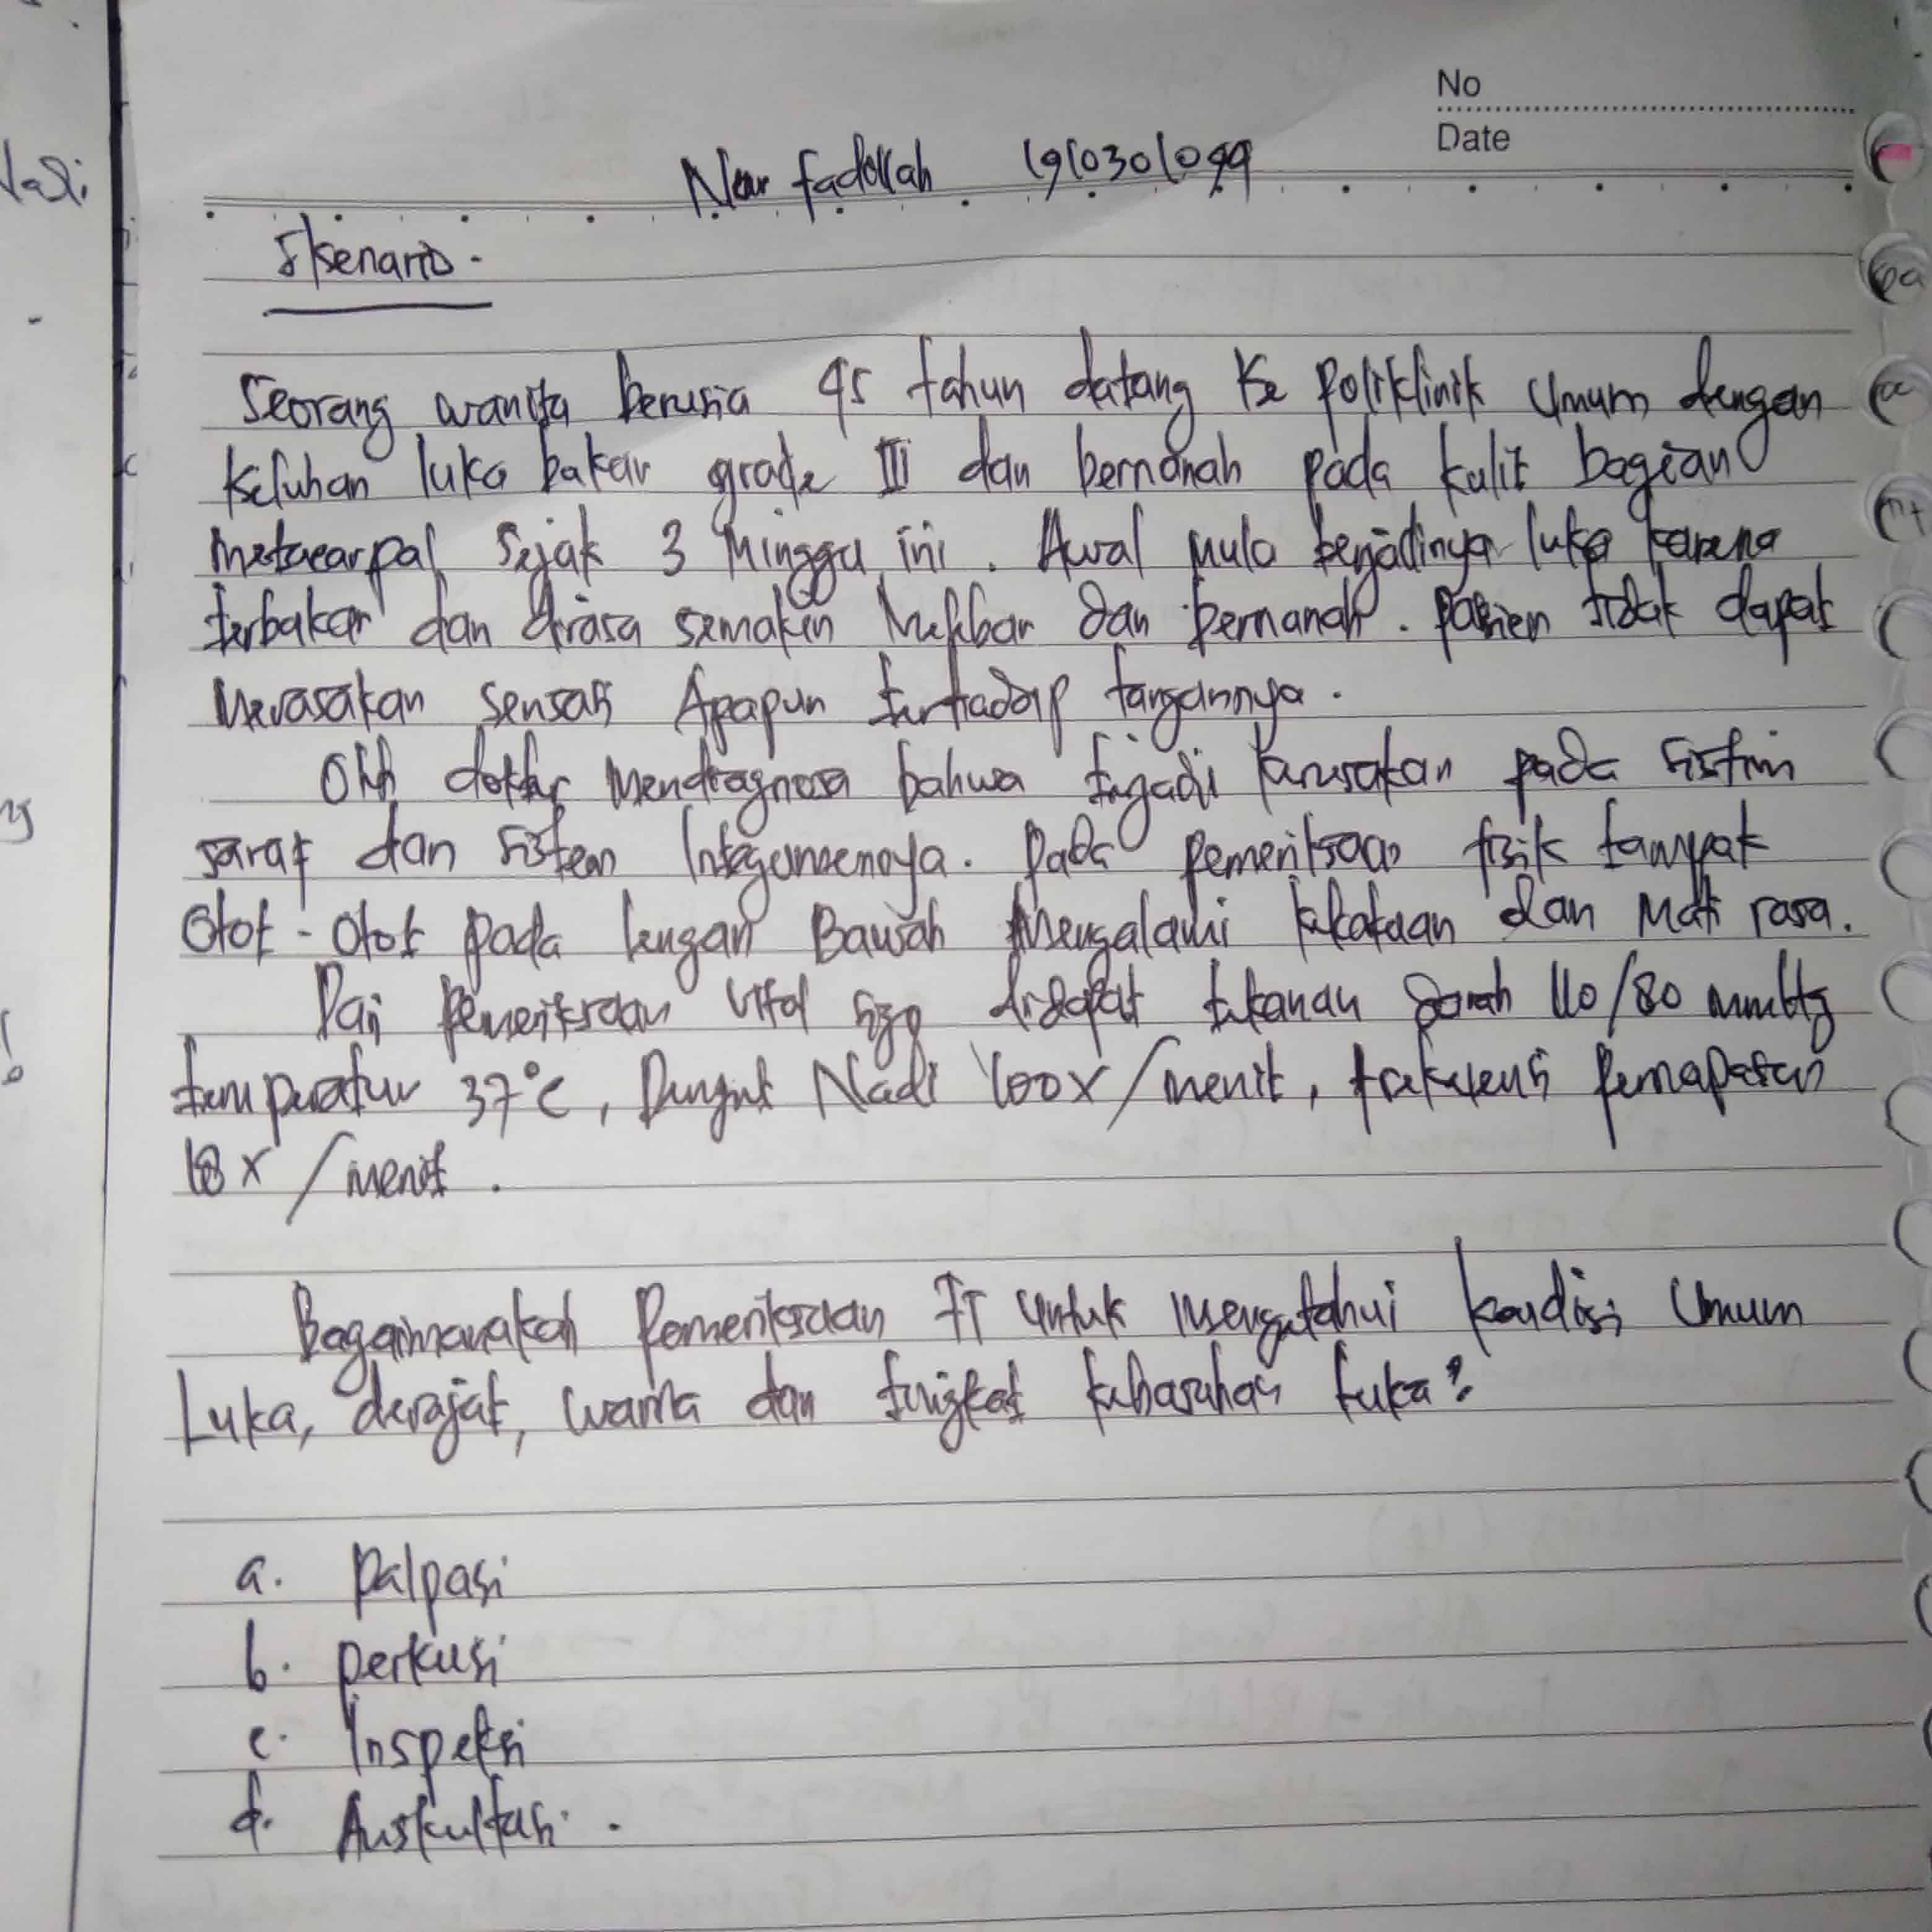 No
Date
Nur fadollah 1910301099
Skenario.
Seorang wanita berusia 45 tahun datang ke poliklinik Umum dengan
keluhan luka bakar grade III dan bernanah pada kulit bagian
metacarpal sejak 3 minggu ini. Awal mula terjadinya luka karena
terbakar dan dirasa semakin melebar dan bernanah. pasien tidak dapat
merasakan sensasi Apapun terhadap tangannya.
Oleh dokter mendiagnosa bahwa terjadi kerusakan pada sistim
saraf dan sistem Integumennya. pada pemeriksaan fisik tampak
Otot-Otot pada lengan Bawah Mengalami kekakuan dan Mati rasa.
Dari pemeriksaan vital sign didapat tekanan darah 110/80 mmHg
temperatur 37°C, Denyut Nadi 100x/menit, frekuensi pernapasan
18x/menit.
Bagaimanakah Pemeriksaan FT untuk mengetahui kondisi Umum
Luka, derajat, warna dan tingkat kebasahan luka?
a. palpasi
b. perkusi
c. Inspeksi
d. Auskultasi.